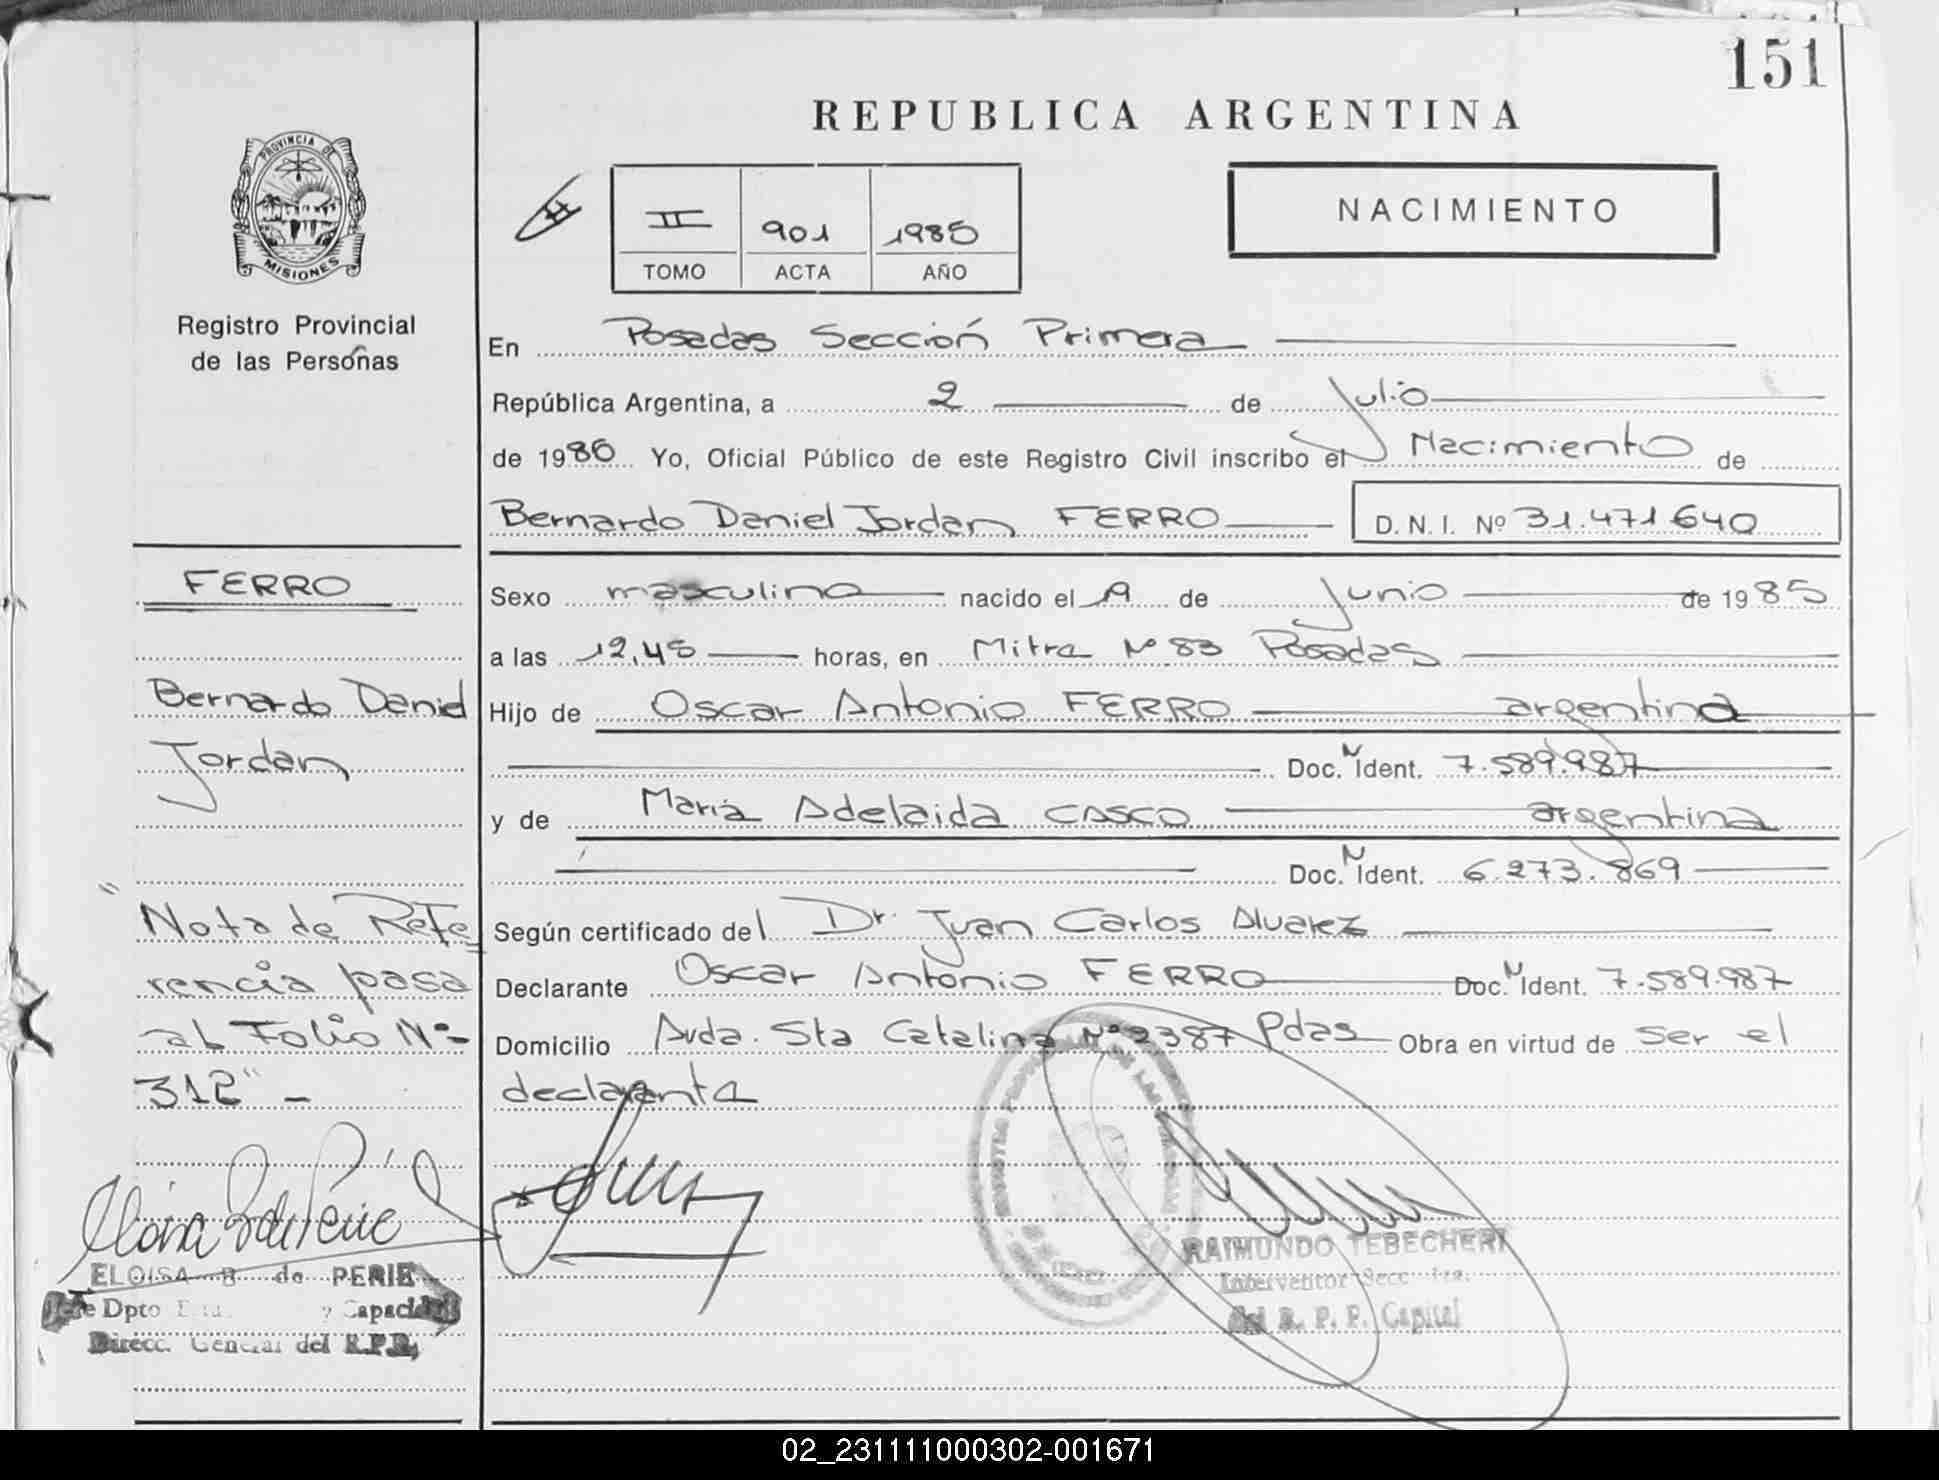 151
REPUBLICA ARGENTINA
PROVINCIA DE
MISIONES
Registro Provincial
de las Personas
II 901 1985
TOMO ACTA AÑO
NACIMIENTO
En Posadas Sección Primera
República Argentina, a 2 de Julio
de 1986 Yo, Oficial Público de este Registro Civil inscribo el Nacimiento de
Bernardo Daniel Jordan FERRO D.N.I. Nº 31.471.640
Sexo masculino nacido el 19 de Junio de 1985
a las 12,45 horas, en Mitre Nº 83 Posadas
Hijo de Oscar Antonio FERRO argentina
Doc. N Ident. 7.589.987
y de María Adelaida CASCO argentina
Doc. N Ident. 6.273.869
Según certificado del Dr. Juan Carlos Alvarez
Declarante Oscar Antonio FERRO Doc. N Ident. 7.589.987
Domicilio Avda. Sta Catalina Nº 2387 Pdas Obra en virtud de ser el
declaranta
FERRO
Bernardo Daniel
Jordan
"Nota de Refe=
rencia pasa
al Folio Nº
312" -
ELOISA B de PERIE
Jefe Dpto y Capacit
Direcc. General del R.P.P.
RAIMUNDO TEBECHERI
Interventor Secc 1ra.
del R. P. P. Capital
02_231111000302-001671